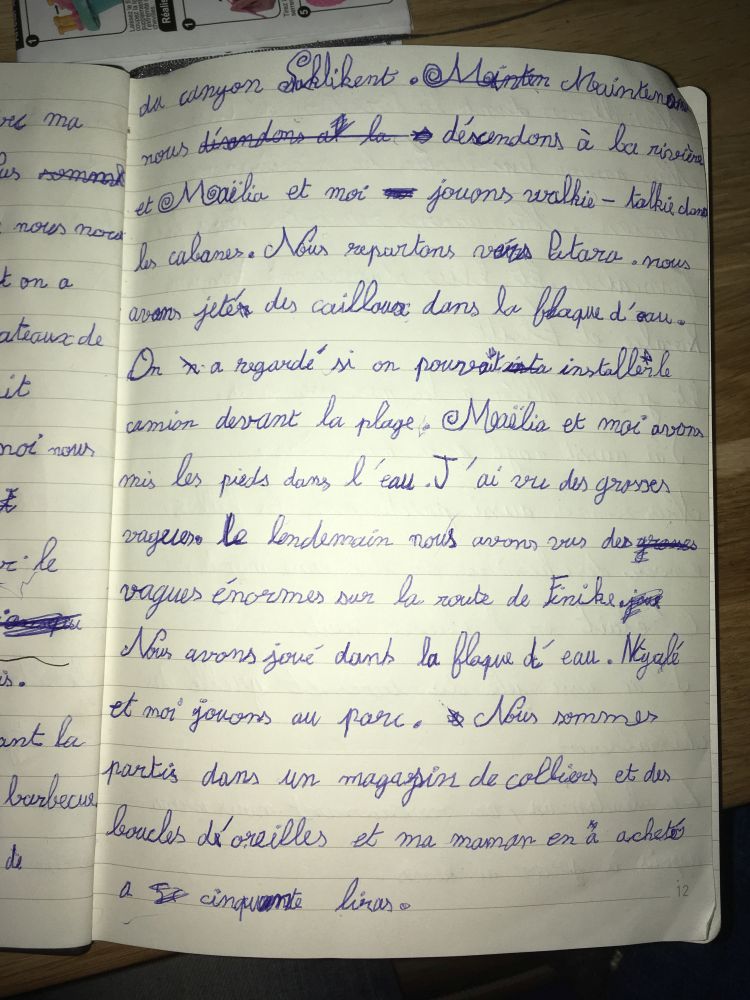 du canyon Saklikent. Mainten Maintenant
nous désendons at la déscendons à la rivière
et Maëlia et moi jouons walkie-talkie dans
les cabanes. Nous repartons vers Patara. nous
avons jetér des cailloux dans la flaque d'eau.
On a regardé si on pouvait insta installer le
camion devant la plage. Maëlia et moi avons
mis les pieds dans l'eau. J'ai vu des grosses
vagues. le lendemain nous avons vus des grosses
vagues énormes sur la route de Finike.
Nous avons joué dans la flaque d'eau.
et moi jouons au parc. Nous sommes
partis dans un magazin de colliers et des
boucles d'oreilles et ma maman en a acheté
a cinquante liras.
12
ma
sommes
nous nous
t on a
ateaux de
it
moi nous
le
is.
ant la
barbecue
de
1
1
5